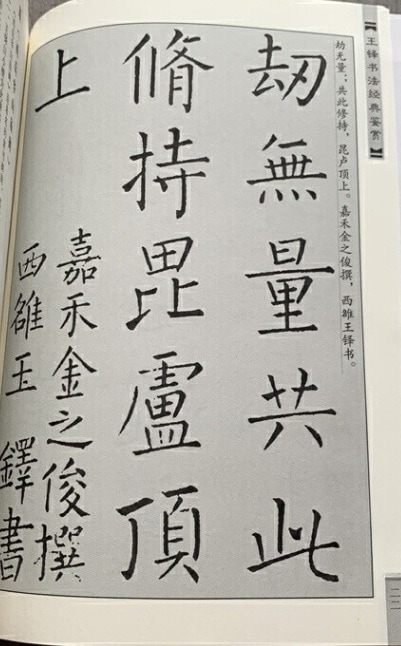 【王铎书法经典鉴赏】
劫无量；共此修持，昆卢顶上。嘉禾金之俊撰，西雒王铎书。
刧無量共此
脩持毘盧頂
上
嘉禾金之俊撰
西雒王鐸書